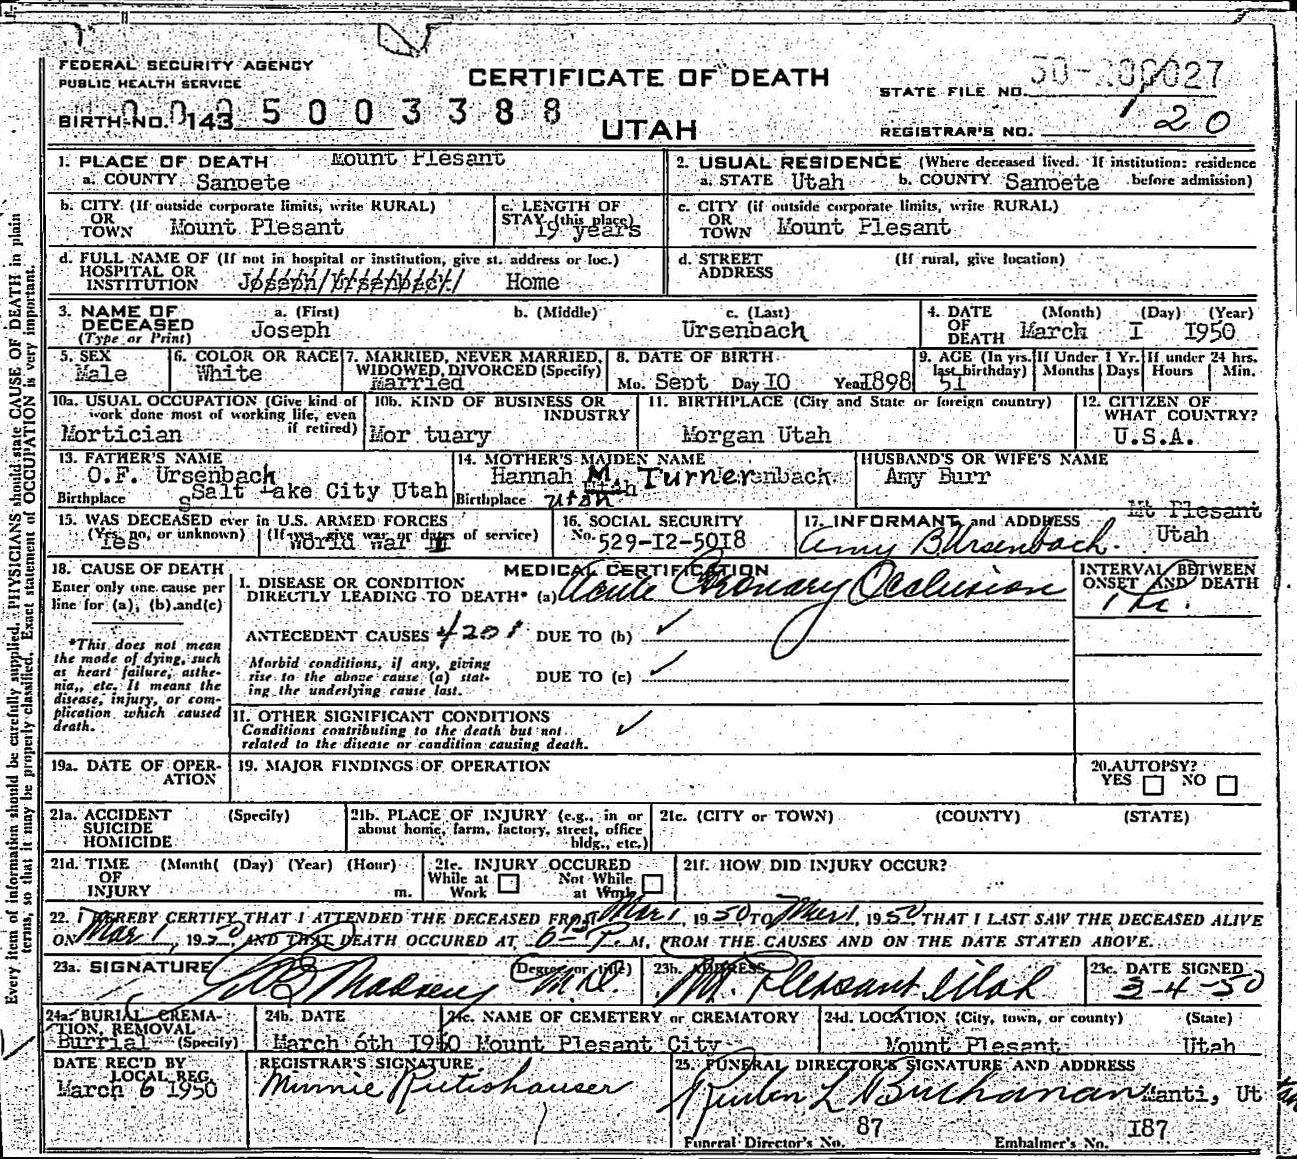 FEDERAL SECURITY AGENCY
PUBLIC HEALTH SERVICE
CERTIFICATE OF DEATH
STATE FILE NO.
BIRTH NO. 143 5003388
UTAH
REGISTRAR'S NO. 20
1. PLACE OF DEATH Mount Plesant
a. COUNTY Sanpete
2. USUAL RESIDENCE (Where deceased lived. If institution: residence before admission)
a. STATE Utah b. COUNTY Sanpete
b. CITY (If outside corporate limits, write RURAL)
OR
TOWN Mount Plesant
c. LENGTH OF
STAY (this place)
19 years
c. CITY (if outside corporate limits, write RURAL)
OR
TOWN Mount Plesant
d. FULL NAME OF (If not in hospital or institution, give st. address or loc.)
HOSPITAL OR
INSTITUTION Joseph Ursenback Home
d. STREET (If rural, give location)
ADDRESS
3. NAME OF a. (First) b. (Middle) c. (Last)
DECEASED Joseph Ursenbach
(Type or Print)
4. DATE (Month) (Day) (Year)
OF
DEATH March I 1950
5. SEX
Male
6. COLOR OR RACE
White
7. MARRIED, NEVER MARRIED,
WIDOWED, DIVORCED (Specify)
Married
8. DATE OF BIRTH
Mo. Sept Day IO Year I898
9. AGE (In yrs. last birthday) If Under 1 Yr. If under 24 hrs.
51 Months Days Hours Min.
10a. USUAL OCCUPATION (Give kind of
work done most of working life, even
if retired)
Mortician
10b. KIND OF BUSINESS OR
INDUSTRY
Mor tuary
11. BIRTHPLACE (City and State or foreign country)
Morgan Utah
12. CITIZEN OF
WHAT COUNTRY?
U.S.A.
13. FATHER'S NAME
O.F. Ursenbach
Birthplace Salt Lake City Utah
14. MOTHER'S MAIDEN NAME
Hannah M. Turner
Birthplace Utah
HUSBAND'S OR WIFE'S NAME
Amy Burr
15. WAS DECEASED ever in U.S. ARMED FORCES
(Yes, no, or unknown) (If yes, give war or dates of service)
Yes World War
16. SOCIAL SECURITY
No. 529-I2-50I8
17. INFORMANT and ADDRESS Mt Plesant
Amy B Ursenbach. Utah
18. CAUSE OF DEATH
Enter only one cause per
line for (a), (b) and (c)
*This does not mean
the mode of dying, such
as heart failure, asthe-
nia,, etc. It means the
disease, injury, or com-
plication which caused
death.
MEDICAL CERTIFICATION
I. DISEASE OR CONDITION
DIRECTLY LEADING TO DEATH* (a) Acute Coronary Occlusion
INTERVAL BETWEEN
ONSET AND DEATH
1 hr.
ANTECEDENT CAUSES 4201 DUE TO (b) ✓
Morbid conditions, if any, giving
rise to the above cause (a) stat-
ing the underlying cause last.
DUE TO (c) ✓
II. OTHER SIGNIFICANT CONDITIONS
Conditions contributing to the death but not
related to the disease or condition causing death. ✓
19a. DATE OF OPER-
ATION
19. MAJOR FINDINGS OF OPERATION
20. AUTOPSY?
YES NO
21a. ACCIDENT (Specify)
SUICIDE
HOMICIDE
21b. PLACE OF INJURY (e.g., in or
about home, farm, factory, street, office
bldg., etc.)
21c. (CITY or TOWN) (COUNTY) (STATE)
21d. TIME (Month( (Day) (Year) (Hour)
OF
INJURY m.
21e. INJURY OCCURED
While at Work Not While at Work
21f. HOW DID INJURY OCCUR?
22. I HEREBY CERTIFY THAT I ATTENDED THE DECEASED FROM Mar 1, 1950 TO Mar 1, 1950 THAT I LAST SAW THE DECEASED ALIVE
ON Mar 1, 1950, AND THAT DEATH OCCURED AT 6 P. M, FROM THE CAUSES AND ON THE DATE STATED ABOVE.
23a. SIGNATURE (Degree or title)
Madsen M.D.
23b. ADDRESS
Mt. Pleasant Utah
23c. DATE SIGNED
3-4-50
24a. BURIAL, CREMA-
TION, REMOVAL
Burrial (Specify)
24b. DATE
March 6th 1950
24c. NAME OF CEMETERY or CREMATORY
Mount Plesant City
24d. LOCATION (City, town, or county) (State)
Mount Plesant Utah
DATE REC'D BY
LOCAL REG.
March 6 1950
REGISTRAR'S SIGNATURE
Minnie Rutishauser
25. FUNERAL DIRECTOR'S SIGNATURE AND ADDRESS
Reuben L Buchanan Manti, Utah
Funeral Director's No. 87 Embalmer's No. I87
Every item of information should be carefully supplied. PHYSICIANS should state CAUSE OF DEATH in plain
terms, so that it may be properly classified. Exact statement of OCCUPATION is very important.